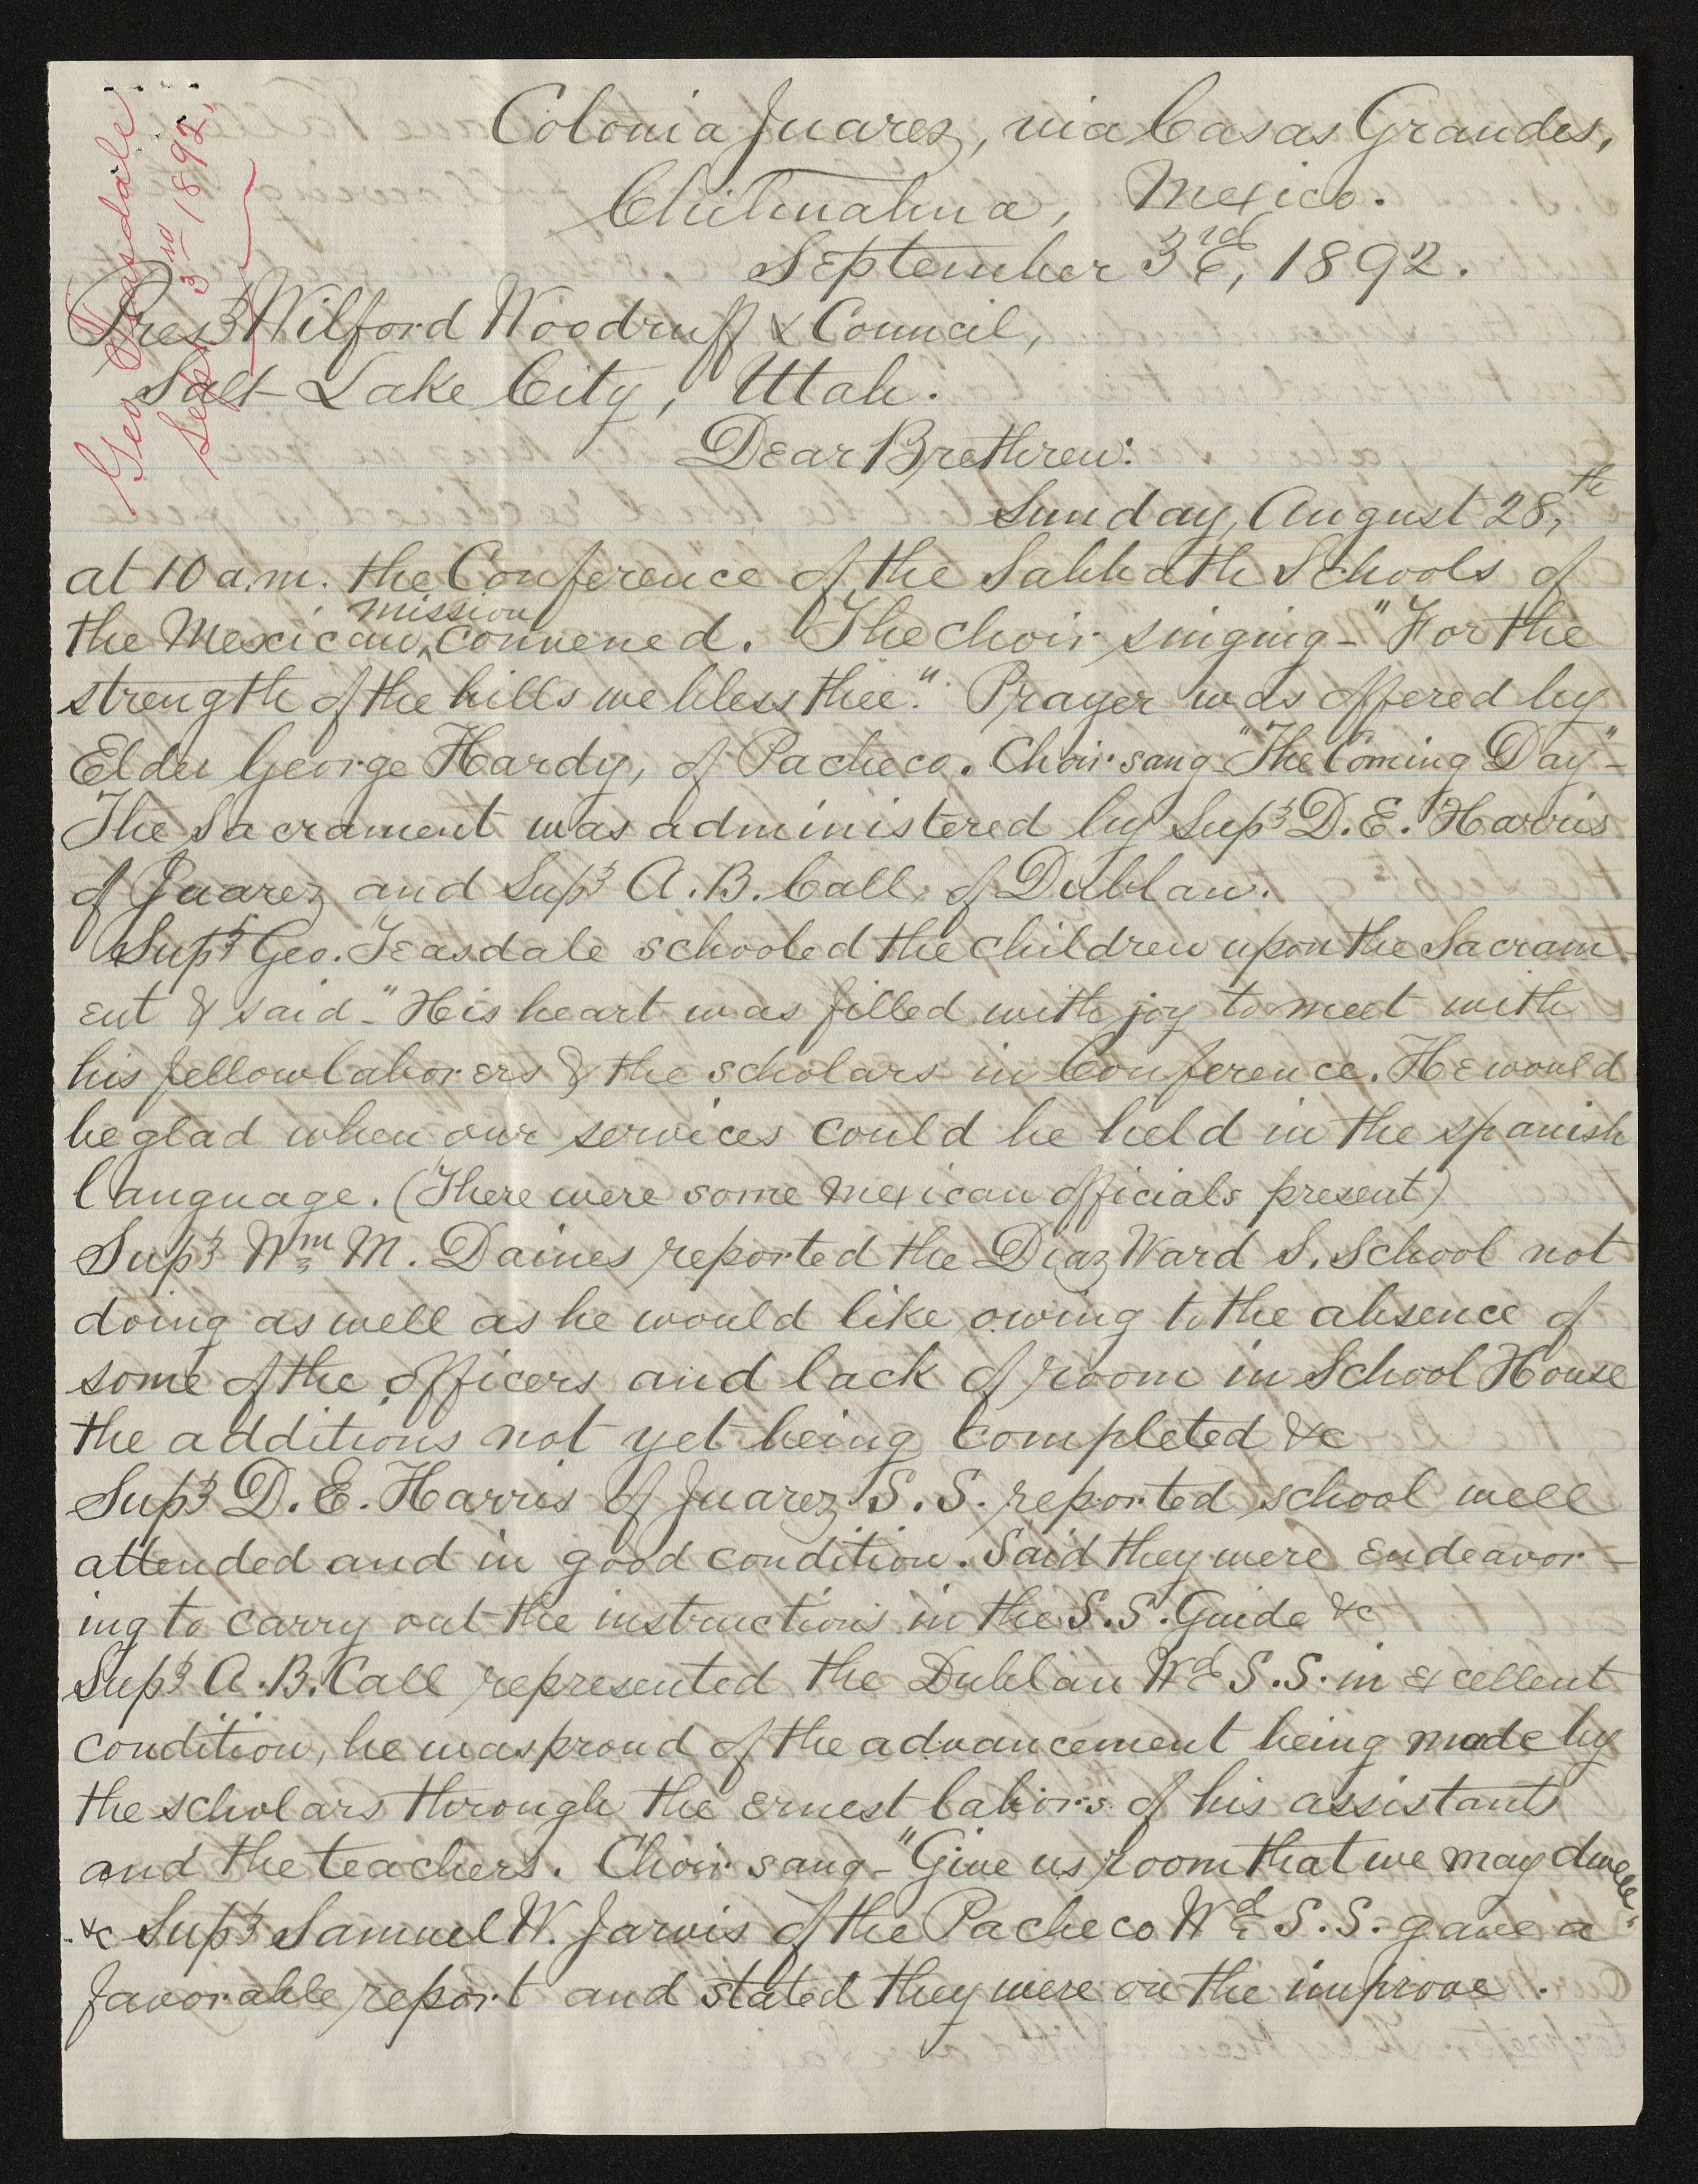 Geo Teasdale
Sept 3rd 1892.
Colonia Juarez, via Casas Grandes,
Chihuahua, Mexico.
September 3rd, 1892.
Prest Wilford Woodruff & Council,
Salt Lake City, Utah.
Dear Brethren:
Sunday, August 28,th
at 10 a.m. the Conference of the Sabbath Schools of
the Mexican mission convened. The choir singing - "For the
strength of the hills we bless thee." Prayer was offered by
Elder George Hardy, of Pacheco. Choir sang "The Coming Day" -
The Sacrament was administered by Supt D. E. Harris
of Juarez and Supt A. B. Call of Dublan.
Supt Geo. Teasdale schooled the children upon the Sacram-
ent & said - "His heart was filled with joy to meet with
his fellow laborers & the scholars in Conference. He would
be glad when our services could be held in the spanish
language. (There were some mexican officials present)
Supt Wm M. Daines reported the Diaz Ward S. School not
doing as well as he would like owing to the absence of
some of the officers and lack of room in School House
the additions not yet being completed &c
Supt D. E. Harris of Juarez S. S. reported school well
attended and in good condition. Said they were endeavor-
ing to carry out the instructions in the S. S. Guide &c
Supt A. B. Call represented the Dublan Wd S. S. in excellent
condition, he was proud of the advancement being made by
the scholars through the ernest labors of his assistants
and the teachers. Choir sang - "Give us room that we may dwell"
&c Supt Samuel W. Jarvis of the Pacheco Wd S. S. gave a
favorable report and stated they were on the improve.